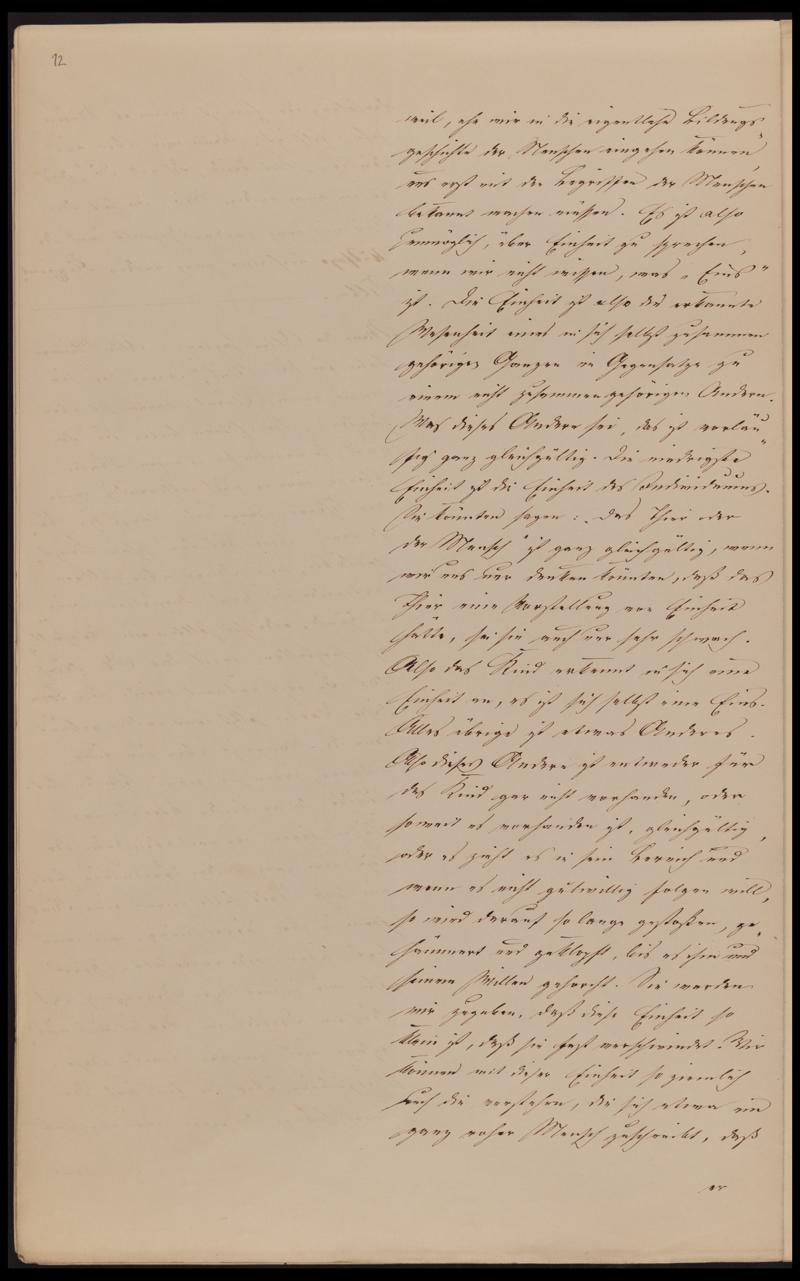 12
weil, ehe wir in die eigentliche Bildungs-
geschichte der Menschen eingehen können,
uns erst mit den Begriffen der Menschen
bekannt machen müssen. Es ist also
unmöglich, über Einheit zu sprechen,
wenn wir nicht wissen, was „Eins"
ist. Die Einheit ist also die erkannte
Wesenheit eines in sich selbst zusammen
gehöriges Ganzen im Gegensatze zu
einem nicht zusammengehörigen Andern.
Was dieses Andere sei, das ist vorläu-
fig ganz gleichgültig. Die niedrigste
Einheit ist die Einheit des Individuums.
Sie könnten sagen: „Das Thier oder
der Mensch" ist ganz gleichgültig, wenn
wir uns nur denken könnten, daß das
Thier eine Vorstellung von Einheit
hätte, sei sie auch nur sehr schwach.
Also das Kind erkennt in sich eine
Einheit an, es ist sich selbst eine Eins.
Alles übrige ist etwas Anderes.
Also dieses Andere ist entweder für
das Kind gar nicht vorhanden, oder
soweit es vorhanden ist, gleichgültig,
oder es zieht es in sein Bereich und
wenn es nicht gutwillig folgen will,
so wird darauf so lange gestoßen, ge-
hämmert und geklopft, bis es ihm und
seinem Willen gehorcht. Sie werden
mir zugeben, daß diese Einheit so
klein ist, daß sie fast verschwindet. Wir
können mit dieser Einheit so ziemlich
auch die verstehen, die sich etwa ein
ganz roher Mensch zuschreibt, daß
er